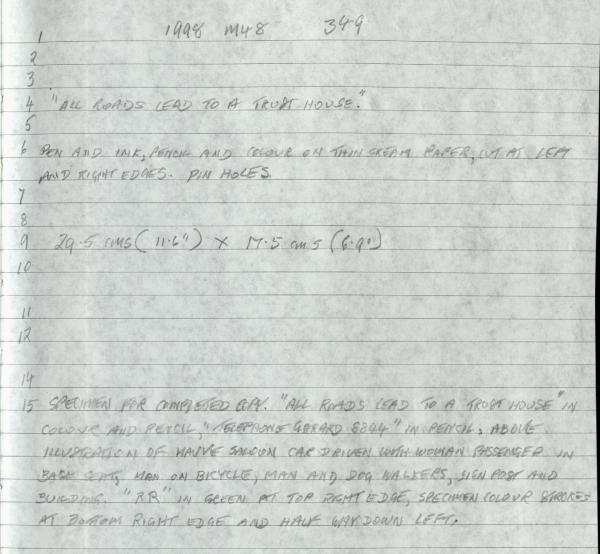 1998 M48 349
1
2
3
4 "ALL ROADS LEAD TO A TRUST HOUSE."
5
6 PEN AND INK, PENCIL AND COLOUR ON THIN CREAM PAPER, CUT AT LEFT
AND RIGHT EDGES. PIN HOLES
7
8
9 29.5 cms (11.6") X 17.5 cms (6.9")
10
11
12
14
15 SPECIMEN FOR COMPLETED COPY. "ALL ROADS LEAD TO A TRUST HOUSE" IN
COLOUR AND PENCIL, "TELEPHONE GERARD 8844" IN PENCIL, ABOVE
ILLUSTRATION OF MAUVE SALOON CAR DRIVEN WITH WOMAN PASSENGER IN
BACK SEAT, MAN ON BICYCLE, MAN AND DOG WALKERS, SIGN POST AND
BUILDING. "R.R" IN GREEN AT TOP RIGHT EDGE, SPECIMEN COLOUR STROKES
AT BOTTOM RIGHT EDGE AND HALF WAY DOWN LEFT.